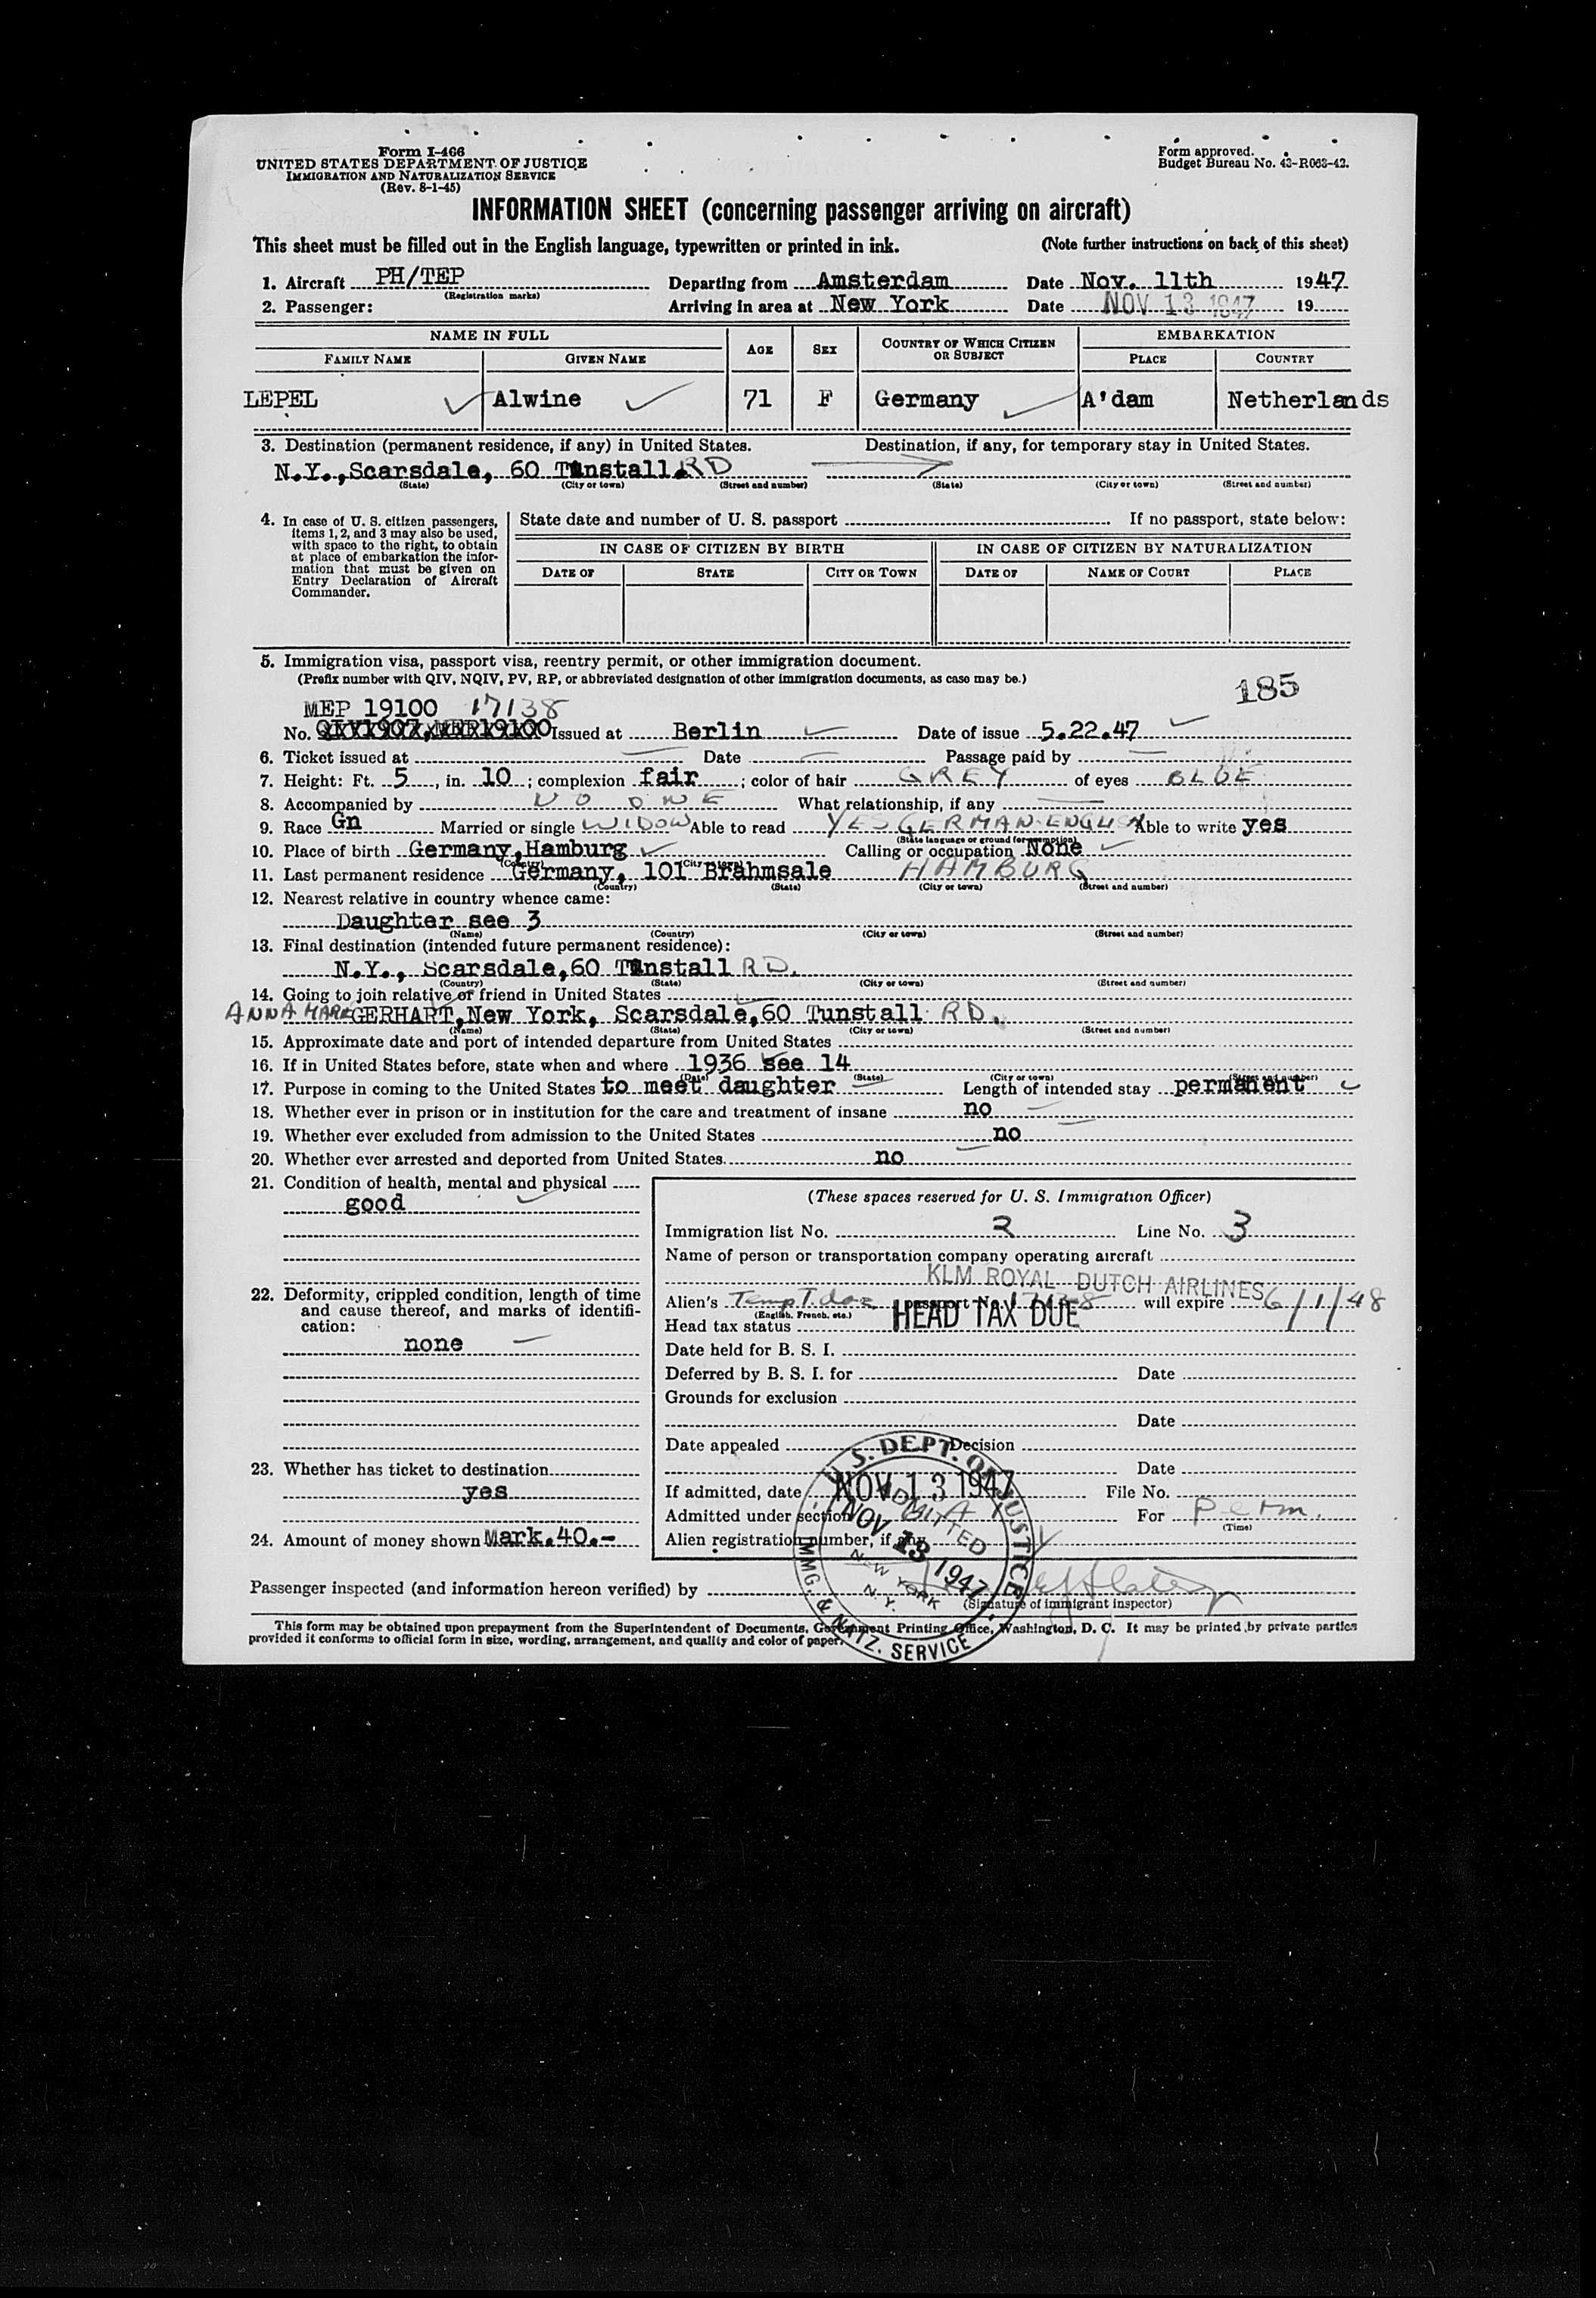 Form I-466
UNITED STATES DEPARTMENT OF JUSTICE
IMMIGRATION AND NATURALIZATION SERVICE
(Rev. 8-1-45)
Form approved.
Budget Bureau No. 43-R063-42.
INFORMATION SHEET (concerning passenger arriving on aircraft)
This sheet must be filled out in the English language, typewritten or printed in ink. (Note further instructions on back of this sheet)
1. Aircraft PH/TEP Departing from Amsterdam Date Nov. 11th 1947
(Registration marks)
2. Passenger: Arriving in area at New York Date NOV 13 1947 19
NAME IN FULL AGE SEX COUNTRY OF WHICH CITIZEN OR SUBJECT EMBARKATION
FAMILY NAME GIVEN NAME PLACE COUNTRY
LEPEL Alwine 71 F Germany A'dam Netherlands
3. Destination (permanent residence, if any) in United States. Destination, if any, for temporary stay in United States.
N.Y., Scarsdale, 60 Tunstall RD
(State) (City or town) (Street and number) (State) (City or town) (Street and number)
4. In case of U. S. citizen passengers, items 1, 2, and 3 may also be used, with space to the right, to obtain at place of embarkation the information that must be given on Entry Declaration of Aircraft Commander.
State date and number of U. S. passport If no passport, state below:
IN CASE OF CITIZEN BY BIRTH IN CASE OF CITIZEN BY NATURALIZATION
DATE OF STATE CITY OR TOWN DATE OF NAME OF COURT PLACE
5. Immigration visa, passport visa, reentry permit, or other immigration document.
(Prefix number with QIV, NQIV, PV, RP, or abbreviated designation of other immigration documents, as case may be.)
185
MEP 19100 17138
No. Issued at Berlin Date of issue 5.22.47
6. Ticket issued at Date Passage paid by
7. Height: Ft. 5, in. 10; complexion fair; color of hair GREY of eyes BLUE
8. Accompanied by NO ONE What relationship, if any
9. Race Gn Married or single WIDOW Able to read YES GERMAN-ENGLISH Able to write yes
(State language or ground for exemption)
10. Place of birth Germany, Hamburg Calling or occupation None
(Country) (City or town)
11. Last permanent residence Germany, 101 Brahmsale HAMBURG
(Country) (State) (City or town) (Street and number)
12. Nearest relative in country whence came:
Daughter see 3
(Name) (Country) (City or town) (Street and number)
13. Final destination (intended future permanent residence):
N.Y., Scarsdale, 60 Tunstall RD.
(Country) (State) (City or town) (Street and number)
14. Going to join relative or friend in United States
ANNA MARIE GERHART, New York, Scarsdale, 60 Tunstall RD.
(Name) (State) (City or town) (Street and number)
15. Approximate date and port of intended departure from United States
16. If in United States before, state when and where 1936 see 14
(Date) (State) (City or town) (Street and number)
17. Purpose in coming to the United States to meet daughter Length of intended stay permanent
18. Whether ever in prison or in institution for the care and treatment of insane no
19. Whether ever excluded from admission to the United States no
20. Whether ever arrested and deported from United States. no
21. Condition of health, mental and physical
good
22. Deformity, crippled condition, length of time and cause thereof, and marks of identification:
none
23. Whether has ticket to destination
yes
24. Amount of money shown Mark.40.-
(These spaces reserved for U. S. Immigration Officer)
Immigration list No. 2 Line No. 3
Name of person or transportation company operating aircraft
KLM ROYAL DUTCH AIRLINES
Alien's Temp T. doc passport No. 17138 will expire 6/1/48
(English, French, etc.)
Head tax status HEAD TAX DUE
Date held for B. S. I.
Deferred by B. S. I. for Date
Grounds for exclusion
Date
Date appealed Decision
Date
If admitted, date NOV 13 1947 File No.
Admitted under section For Perm.
(Time)
Alien registration number, if any
U. S. DEPT. OF JUSTICE
ADMITTED
NOV 13 1947
NEW YORK
N. Y.
IMMG. & NATZ. SERVICE
Passenger inspected (and information hereon verified) by
(Signature of immigrant inspector)
This form may be obtained upon prepayment from the Superintendent of Documents, Government Printing Office, Washington, D. C. It may be printed by private parties
provided it conforms to official form in size, wording, arrangement, and quality and color of paper.